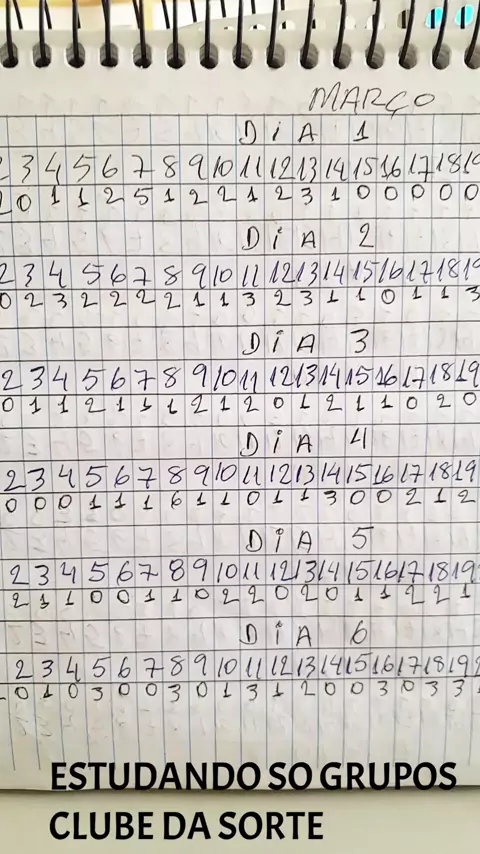 MARÇO
DiA 1
2 3 4 5 6 7 8 9 10 11 12 13 14 15 16 17 18 19
2 0 1 1 2 5 1 2 2 1 2 3 1 0 0 0 0 0
DiA 2
2 3 4 5 6 7 8 9 10 11 12 13 14 15 16 17 18 19
0 2 3 2 2 2 2 1 1 3 2 3 1 1 0 1 1 3
DiA 3
2 3 4 5 6 7 8 9 10 11 12 13 14 15 16 17 18 19
0 1 1 2 1 1 1 2 1 2 0 1 2 1 1 0 2 0
DiA 4
2 3 4 5 6 7 8 9 10 11 12 13 14 15 16 17 18 19
0 0 0 1 1 1 6 1 1 0 1 1 3 0 0 2 1 2
DiA 5
2 3 4 5 6 7 8 9 10 11 12 13 14 15 16 17 18 19
2 1 1 0 0 1 1 0 2 2 0 2 0 1 1 2 2 1
DiA 6
2 3 4 5 6 7 8 9 10 11 12 13 14 15 16 17 18 19 2
0 1 0 3 0 0 3 0 1 3 1 2 0 0 3 0 3 3 1
ESTUDANDO SO GRUPOS
CLUBE DA SORTE